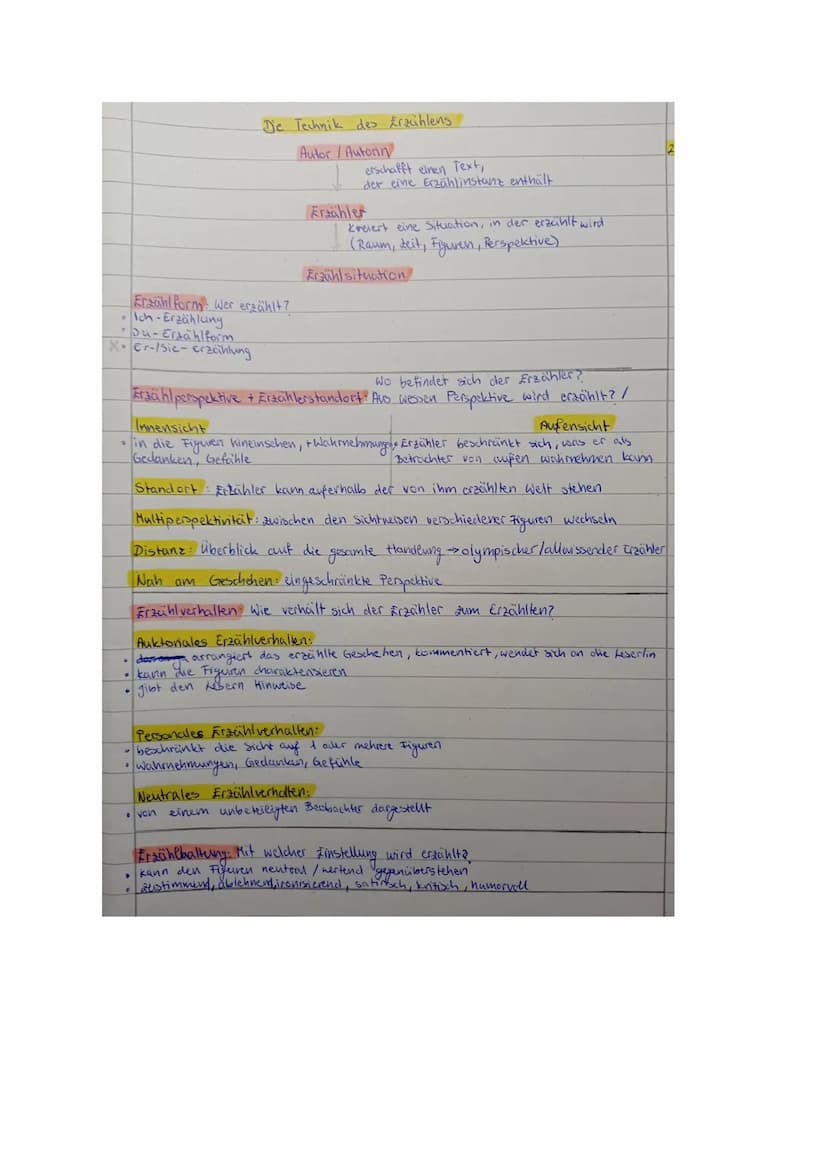 Die Technik des Erzählens
2
Autor / Autorin
erschafft einen Text,
der eine Erzählinstanz enthält
Erzähler
kreiert eine Situation, in der erzählt wird
(Raum, Zeit, Figuren, Perspektive)
Erzählsituation
Erzählform: Wer erzählt?
• Ich-Erzählung
• Du-Erzählform
x • Er-/Sie-Erzählung
Wo befindet sich der Erzähler?
Erzählperspektive + Erzählerstandort: Aus wessen Perspektive wird erzählt? /
Innensicht Außensicht
• in die Figuren hineinsehen, + Wahrnehmung • Erzähler beschränkt sich, was er als
Gedanken, Gefühle Betrachter von außen wahrnehmen kann
Standort: Erzähler kann außerhalb der von ihm erzählten Welt stehen
Multiperspektivität: zwischen den Sichtweisen verschiedener Figuren wechseln
Distanz: Überblick auf die gesamte Handlung → olympischer/allwissender Erzähler
Nah am Geschehen: eingeschränkte Perspektive
Erzählverhalten: Wie verhält sich der Erzähler zum Erzählten?
Auktoriales Erzählverhalten:
• arrangiert das erzählte Geschehen, kommentiert, wendet sich an die Leserin
• kann die Figuren charakterisieren
• gibt den Lesern Hinweise
Personales Erzählverhalten:
• beschränkt die Sicht auf 1 oder mehrere Figuren
• Wahrnehmungen, Gedanken, Gefühle
Neutrales Erzählverhalten:
• von einem unbeteiligten Beobachter dargestellt
Erzählhaltung: Mit welcher Einstellung wird erzählt?
• kann den Figuren neutral / wertend gegenüberstehen
• zustimmend, ablehnend, ironisierend, satirisch, kritisch, humorvoll